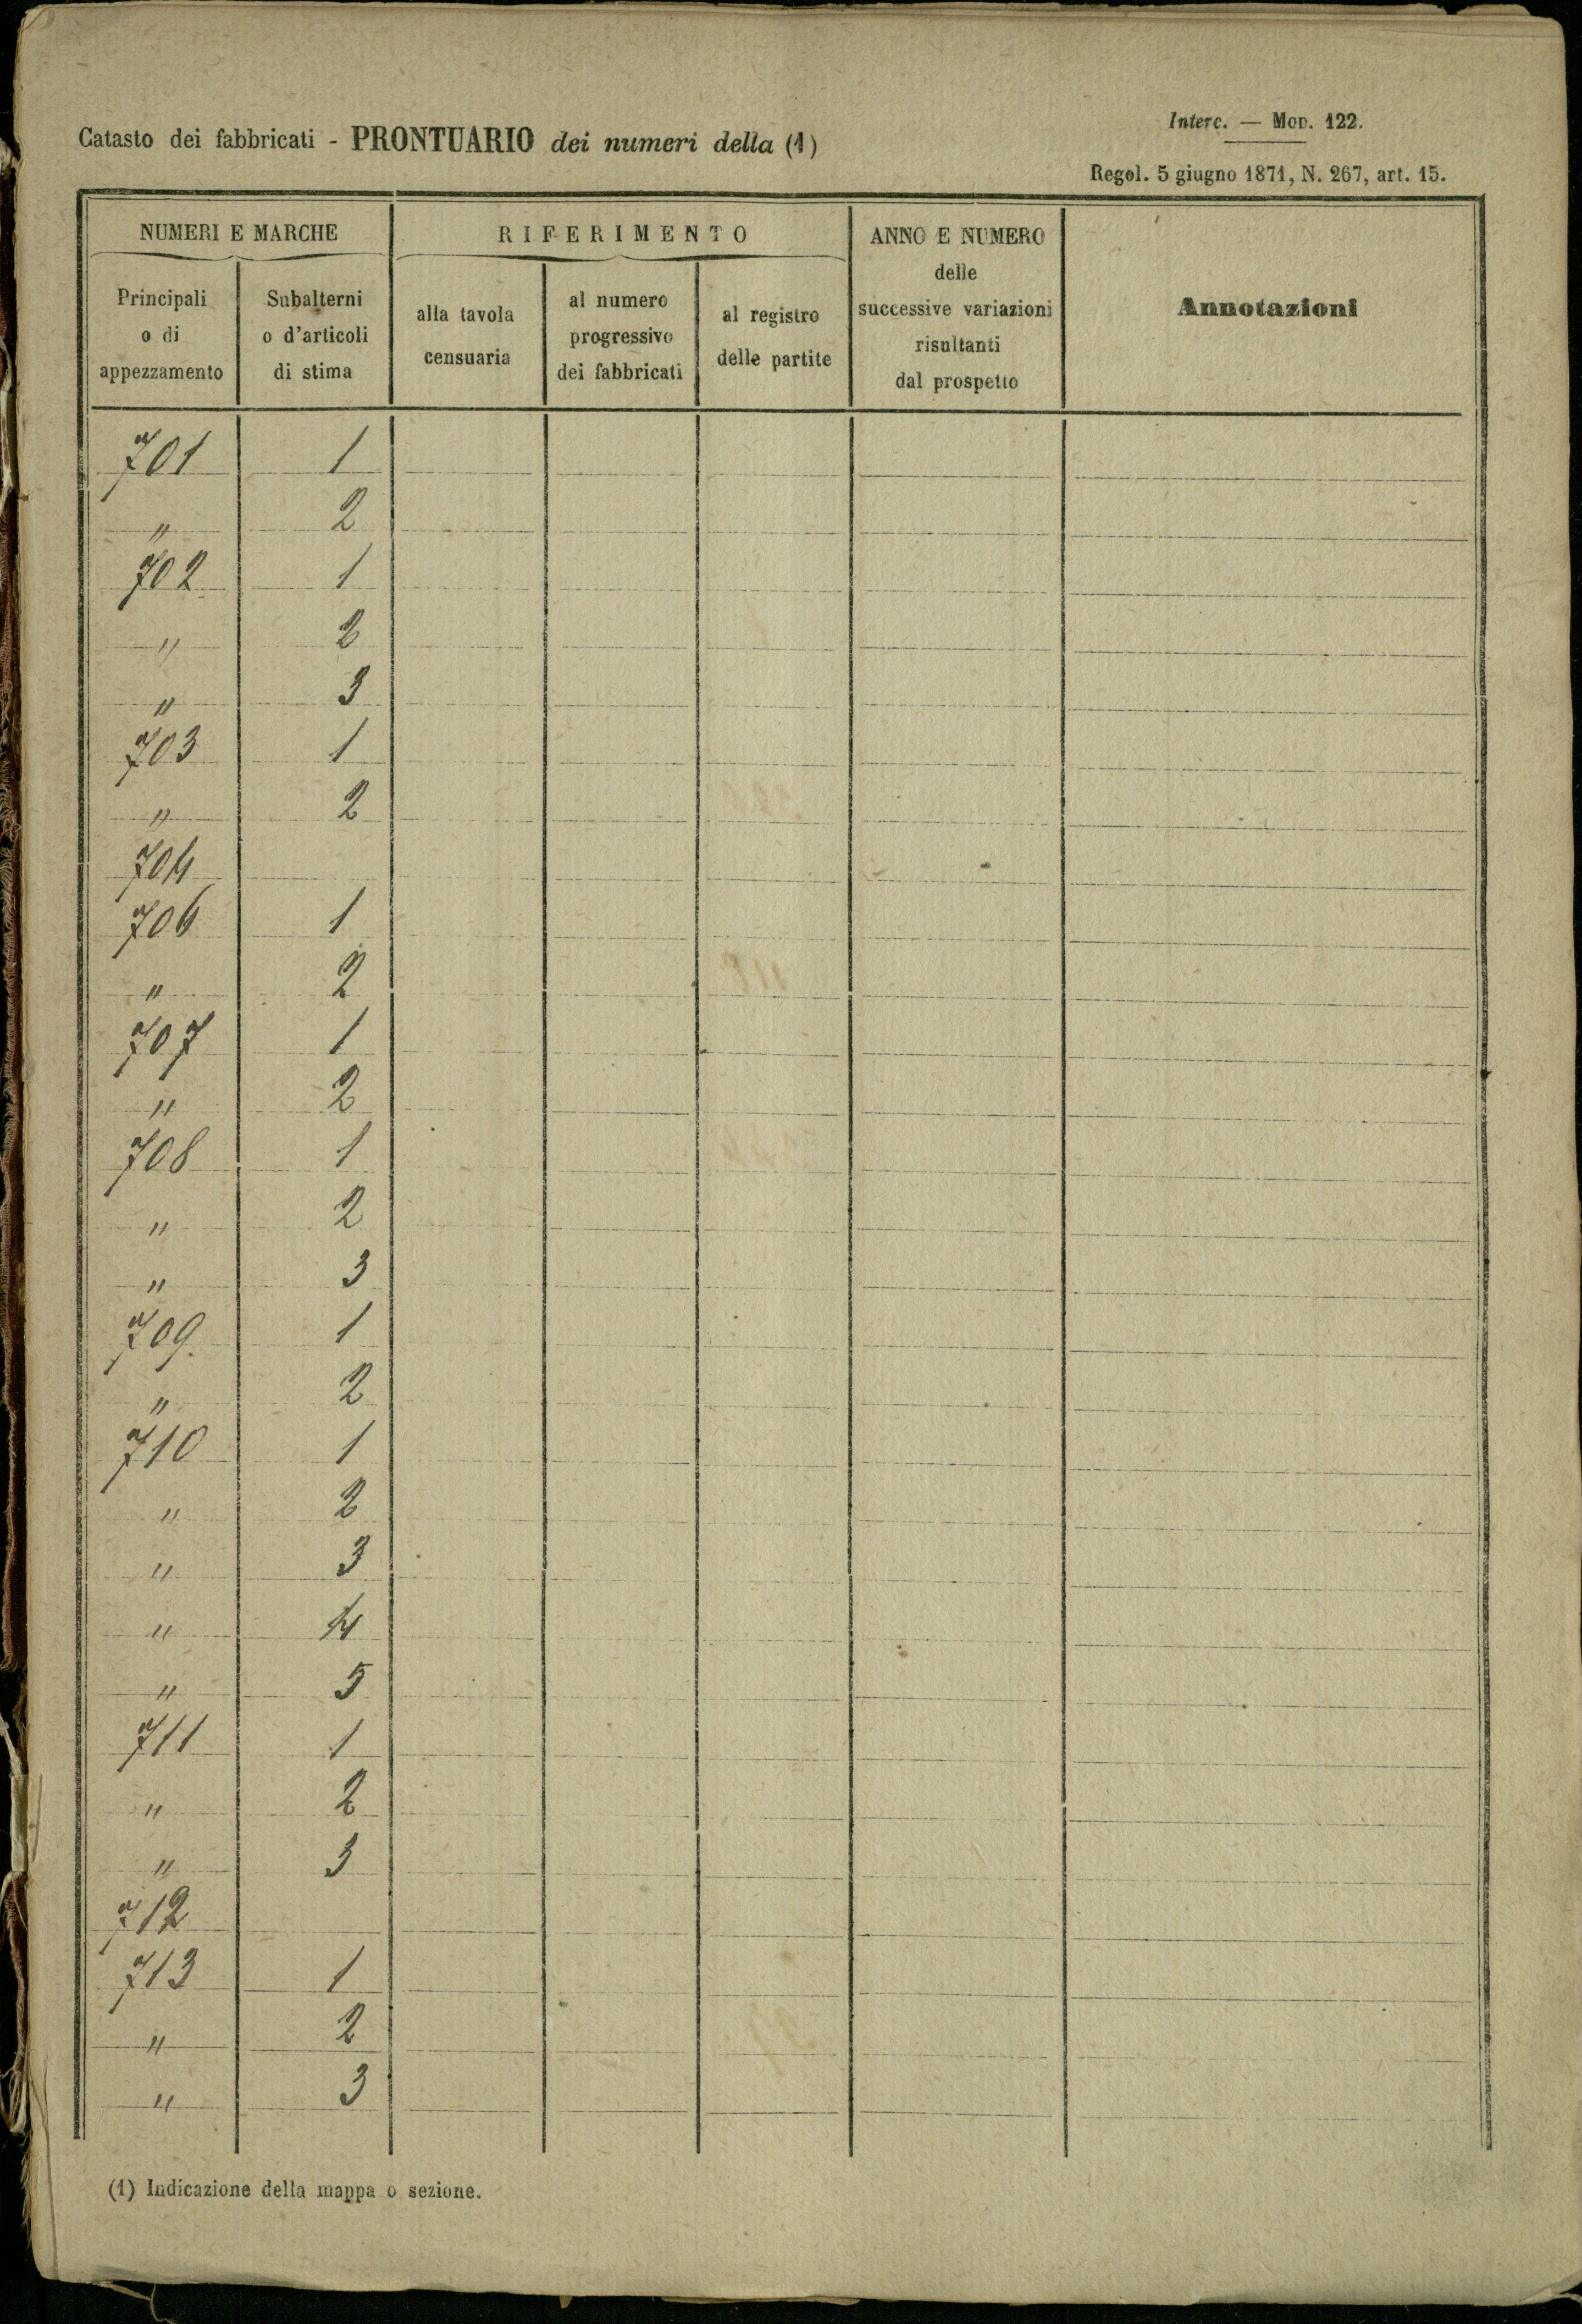 Catasto dei fabbricati - PRONTUARIO dei numeri della (1)
Interc. — Mod. 122.
Regol. 5 giugno 1871, N. 267, art. 15.
NUMERI E MARCHE
RIFERIMENTO
ANNO E NUMERO
delle
successive variazioni
risultanti
dal prospetto
Annotazioni
Principali
o di
appezzamento
Subalterni
o d'articoli
di stima
alla tavola
censuaria
al numero
progressivo
dei fabbricati
al registro
delle partite
701 1
" 2
702 1
" 2
" 3
703 1
" 2
704
706 1
" 2
707 1
" 2
708 1
" 2
" 3
709 1
" 2
710 1
" 2
" 3
" 4
" 5
711 1
" 2
" 3
712
713 1
" 2
" 3
(1) Indicazione della mappa o sezione.